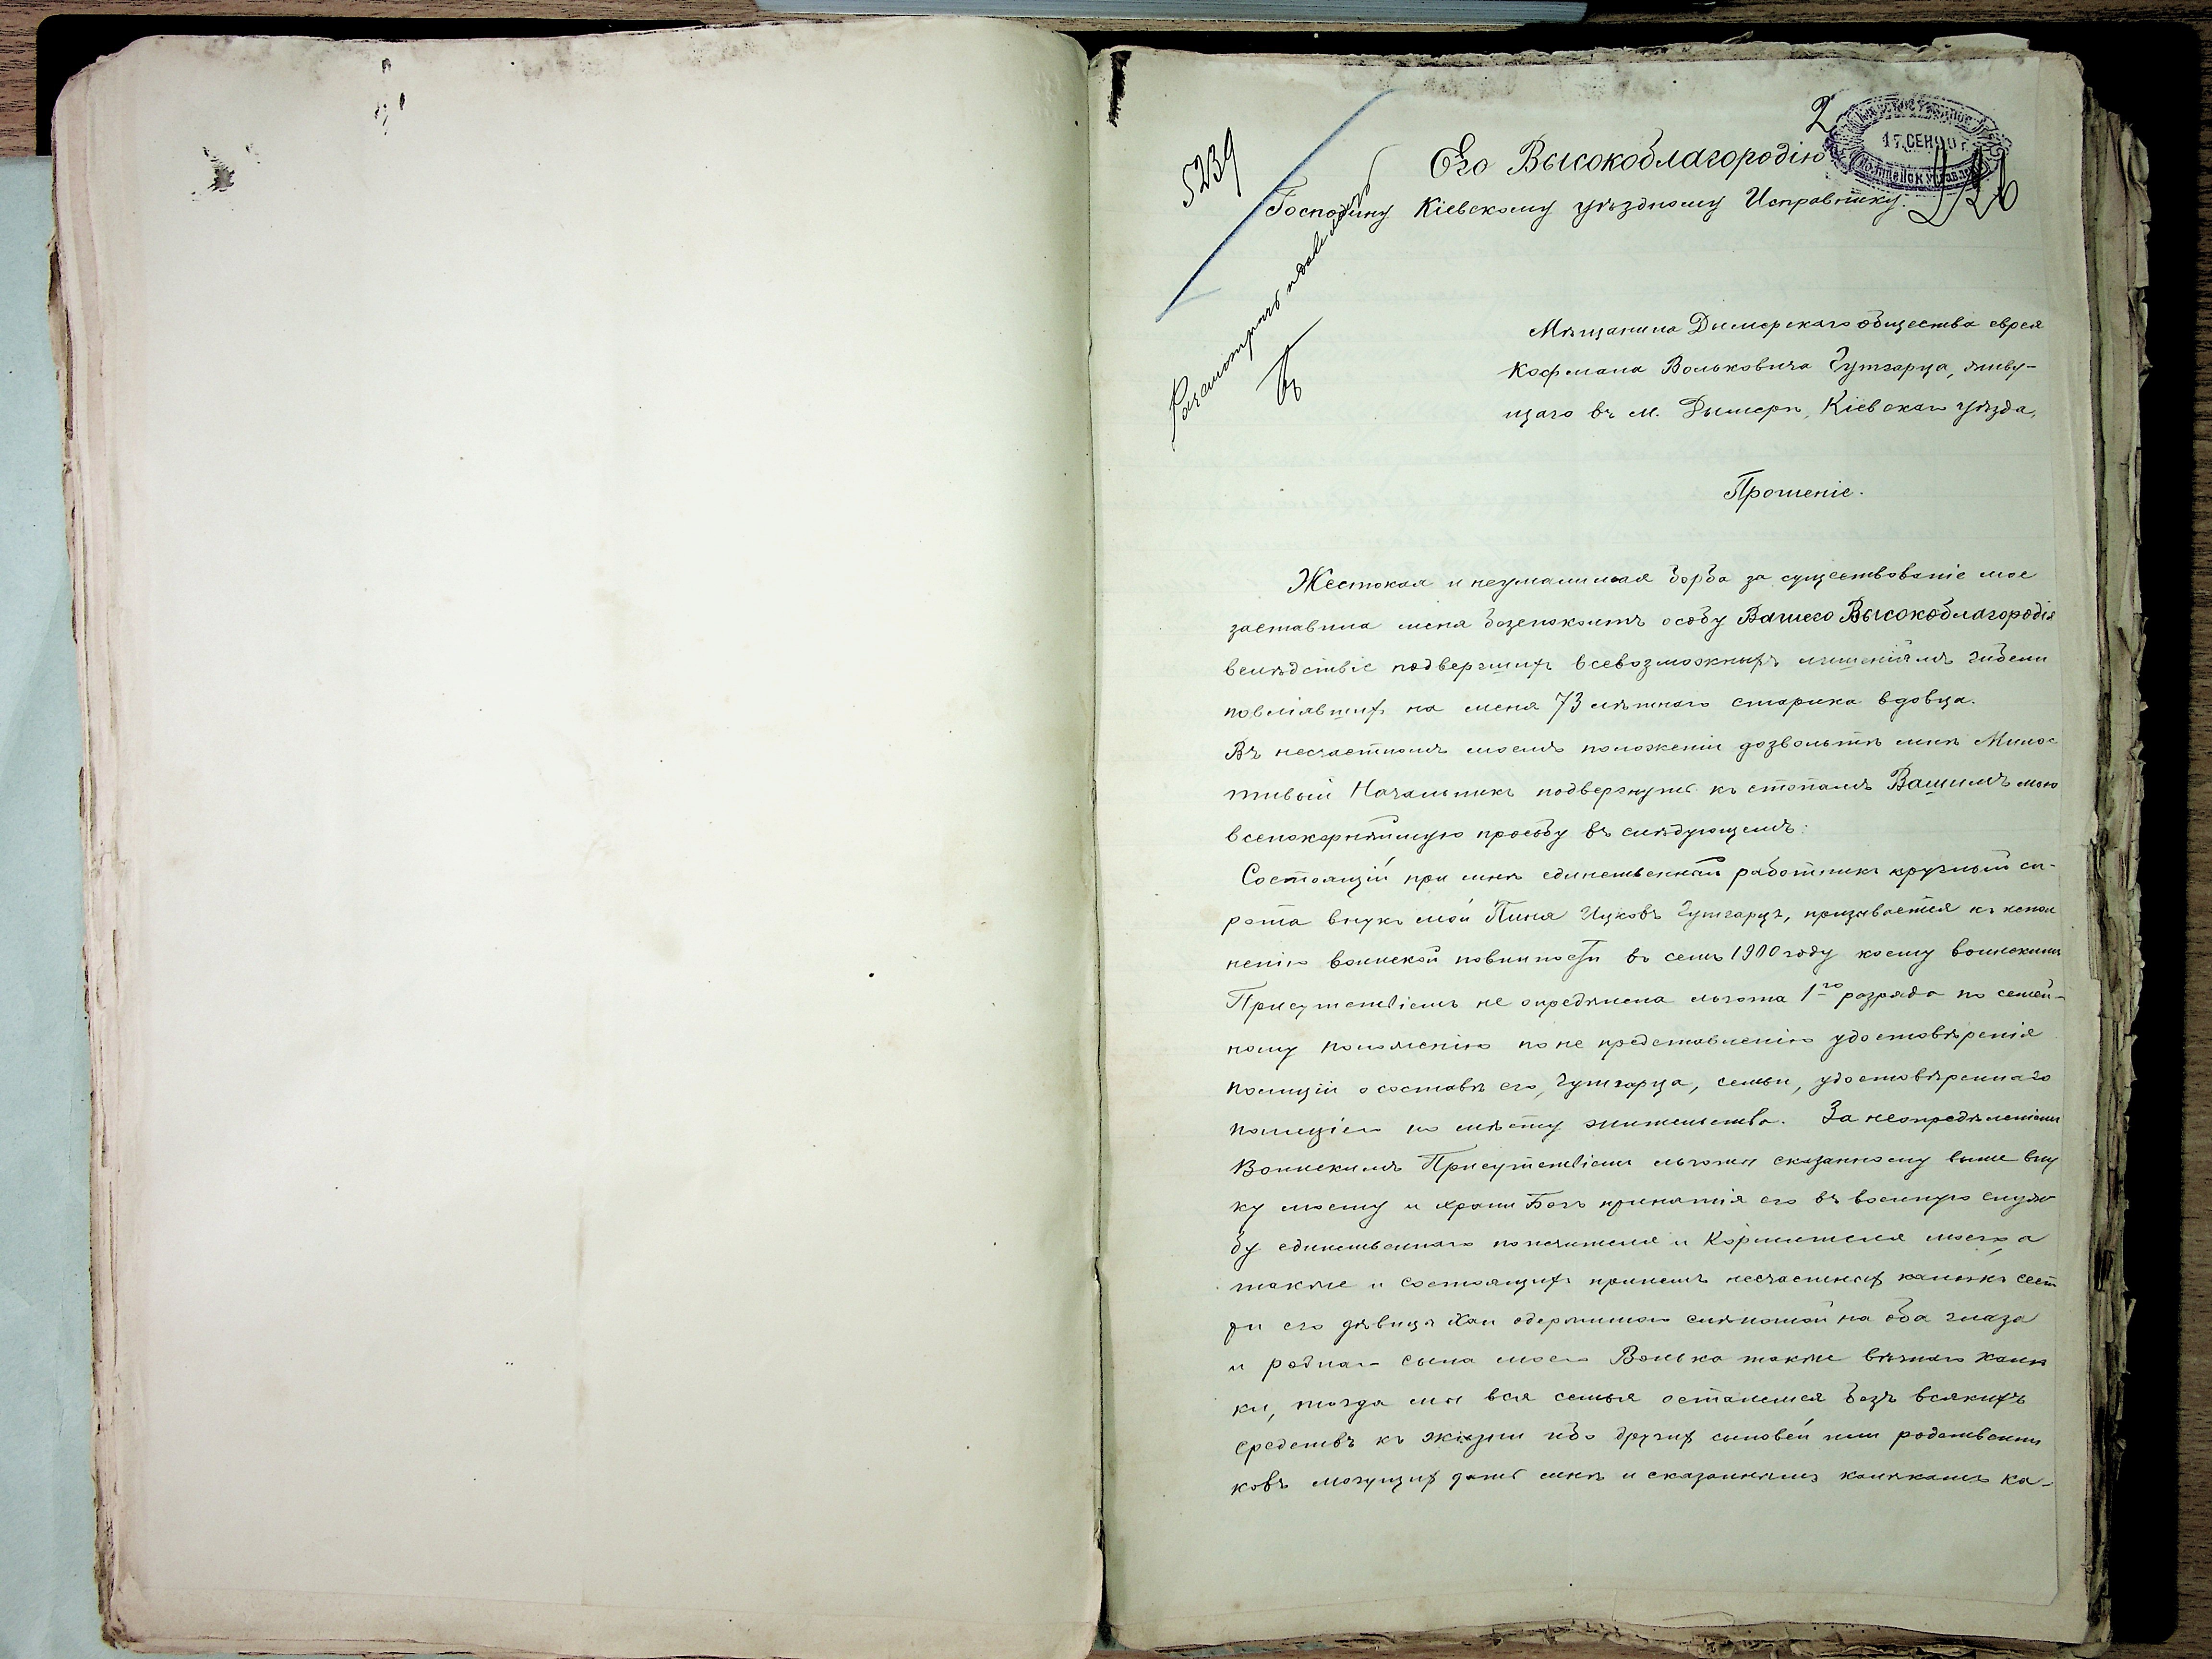 2
КІЕВСКОЕ УѢЗДНОЕ
17 СЕН 900 г.
ПОЛИЦЕЙСК. УПРАВЛЕНІЕ
5239
Его Высокоблагородію
Господину Кіевскому уѣздному Исправнику.
Разсмотрѣть и
Мѣщанина Дымерскаго общества еврея
Кофмана Вольковича Гутгарца, живу-
щаго въ м. Дымерѣ, Кіевскаго уѣзда,
Прошеніе.
Жестокая и неумалимая борба за существованіе мое
заставила меня безпокоить особу Вашего Высокоблагородія
вслѣдствіе подвергшихъ всевозможныхъ лишеніямъ гибели
повліявшихъ на меня 73 лѣтнаго старика вдовца.
Въ несчастномъ моемъ положеніи дозвольтѣ мнѣ Милос
тивый Начальникъ подвергнуть къ стопамъ Вашимъ мою
всепокорнѣйшую просьбу въ слѣдующемъ:
Состоящій при мнѣ единственный работникъ круглый си-
рота внукъ мой Пиня Ицковъ Гутгарцъ, призывается къ испол
ненію воинской повинности въ семъ 1900 году коему воинскимъ
Присутствіемъ не опредѣлена льгота 1го разряда по семей-
ному положенію по не представленію удостовѣренія
полиціи о составѣ его, Гутгарца, семьи, удостовѣреннаго
полиціею по мѣсту жительства. За неопредѣленіемъ
Воинскимъ Присутствіемъ льготы сказанному выше вну
ку моему и храни Богъ принятія его въ военную служ
бу единственнаго попечителя и Кормителя моего а
также и состоящихъ при немъ несчастныхъ калѣкъ сест
ры его дѣвицы Хаи одержимою слѣпотой на оба глаза
и роднаго сына моего Волька также вѣчнаго калѣ
ки, тогда мы вся семья останемся безъ всякихъ
средствъ къ жизни ибо другихъ сыновей или родственни
ковъ могущихъ дать мнѣ и сказаннымъ калѣкамъ ка-